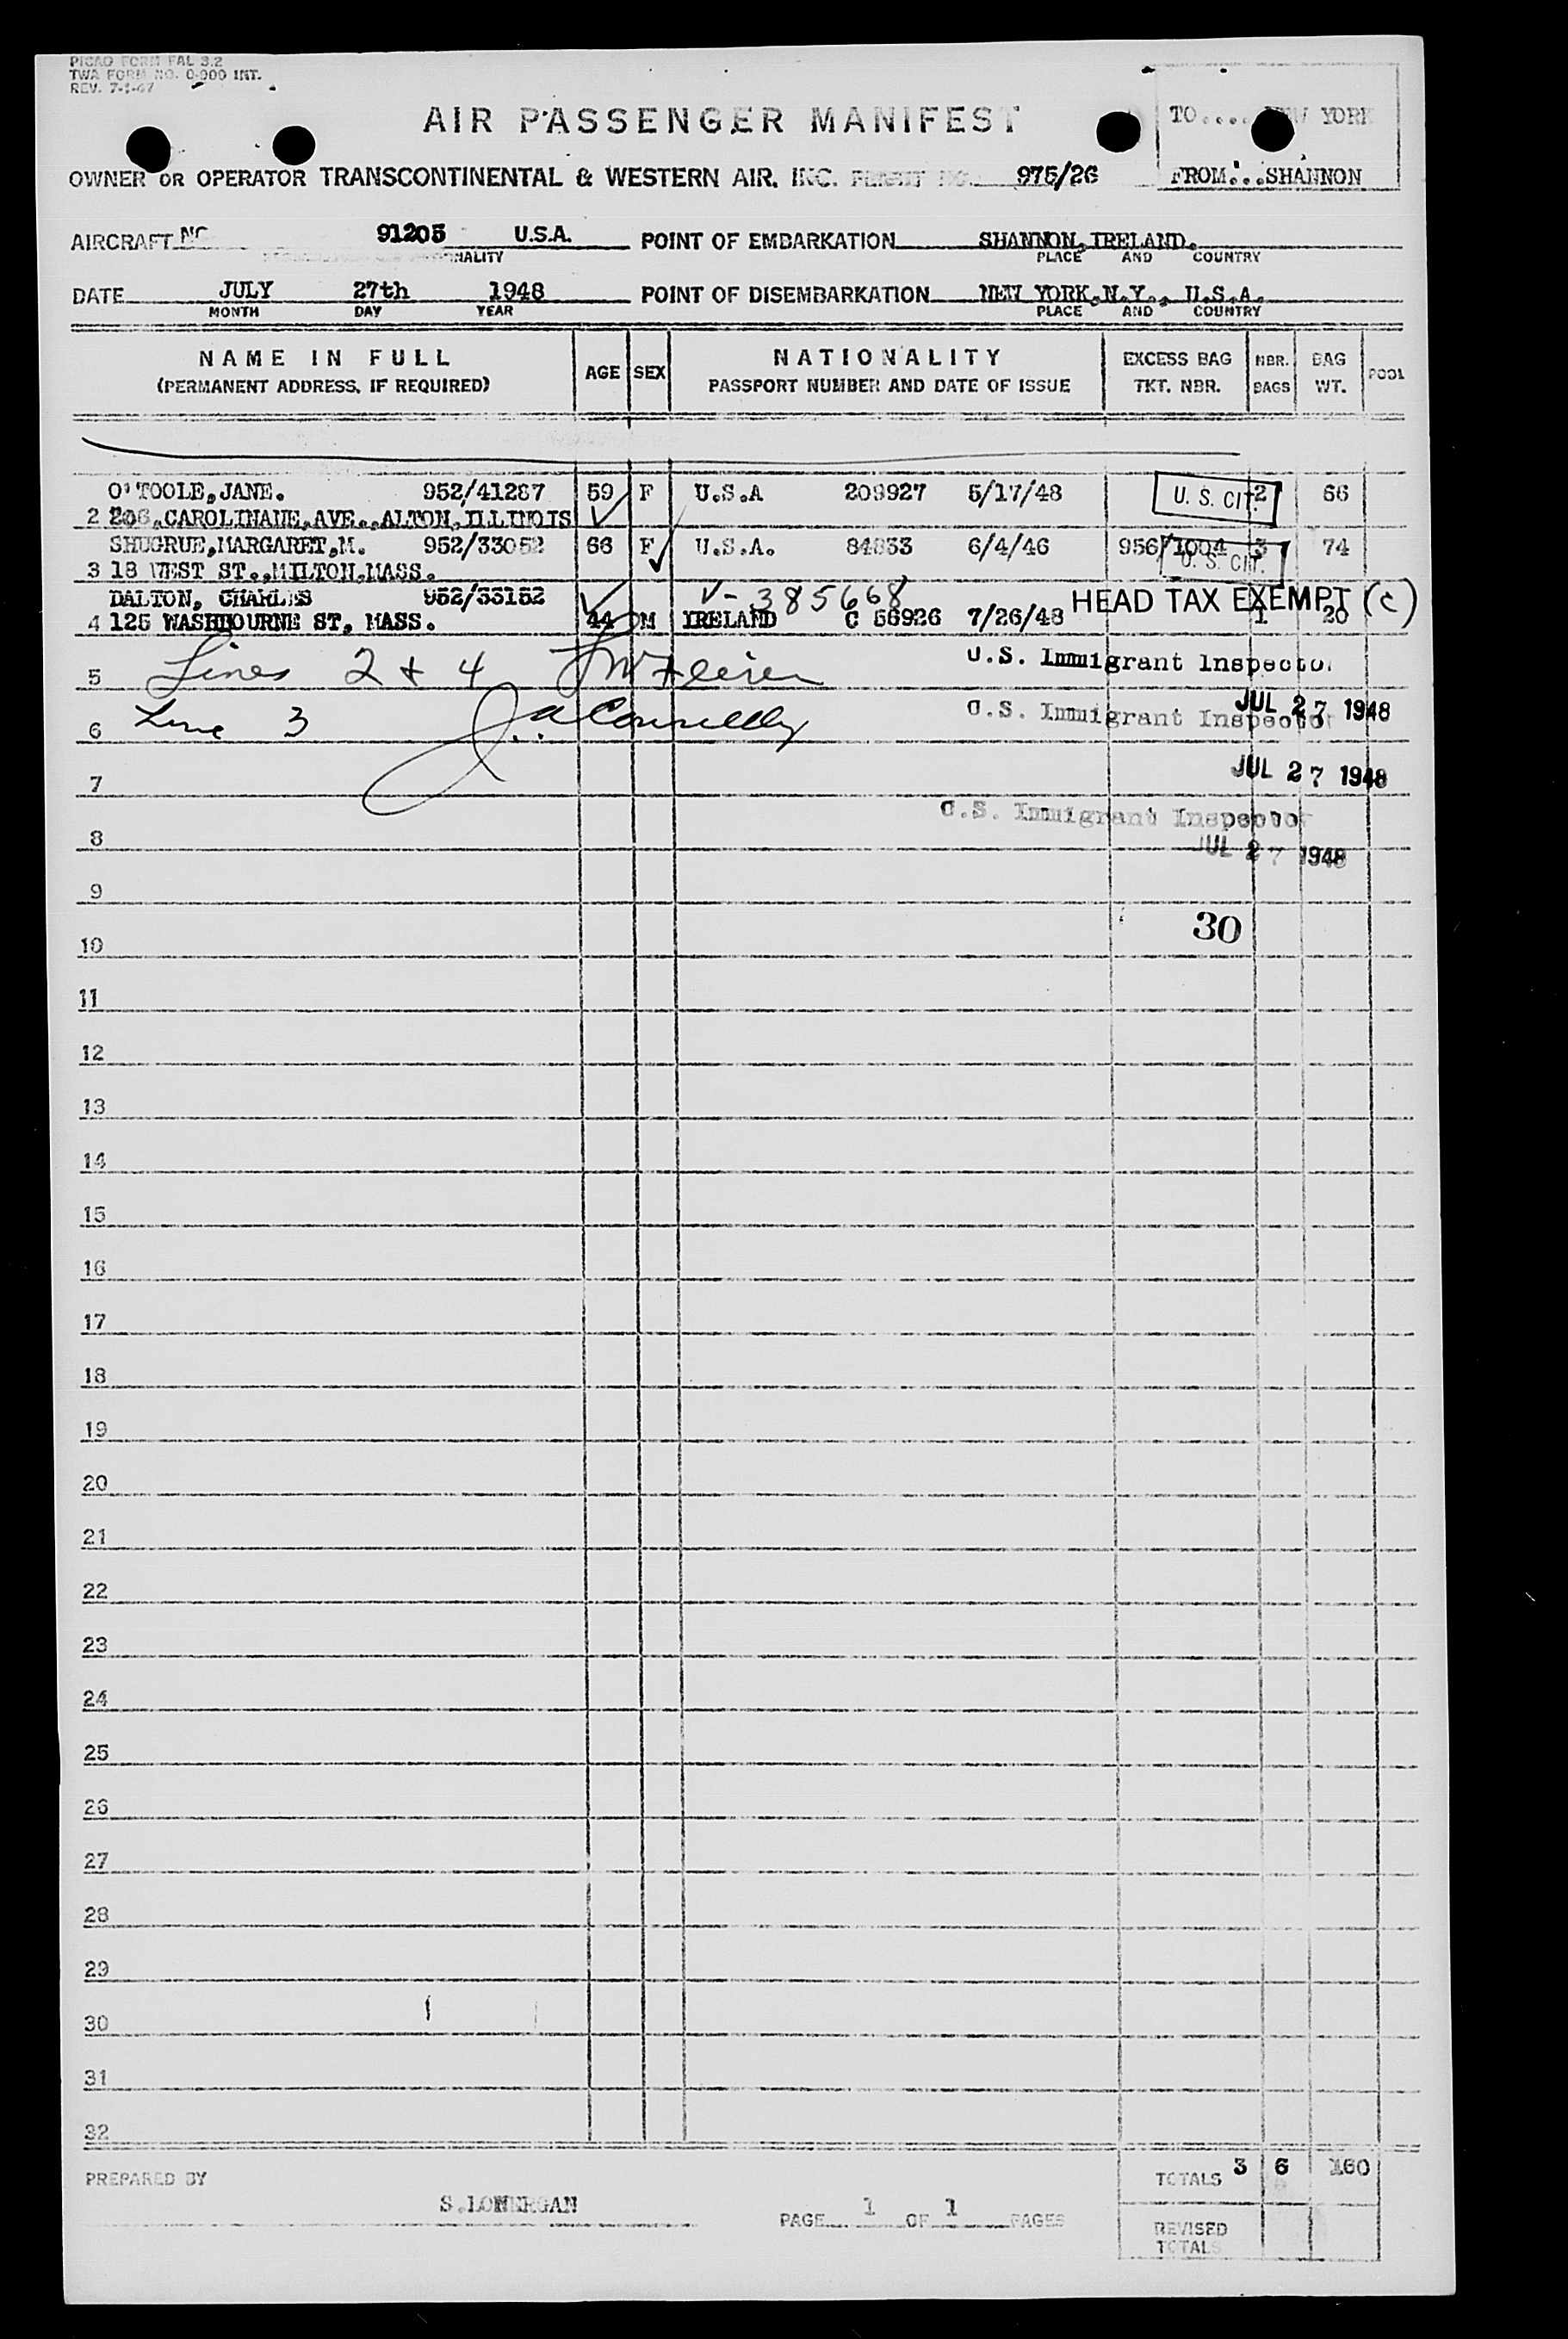 PICAO FORM FAL 3.2
TWA FORM NO. 0-900 INT.
REV. 7-1-47
AIR PASSENGER MANIFEST
TO.... NEW YORK
FROM...SHANNON
OWNER OR OPERATOR TRANSCONTINENTAL & WESTERN AIR, INC. 975/26
AIRCRAFT NC 91205 U.S.A. POINT OF EMBARKATION SHANNON,IRELAND.
PLACE AND COUNTRY
DATE JULY 27th 1948 POINT OF DISEMBARKATION NEW YORK,N.Y., U.S.A.
MONTH DAY YEAR PLACE AND COUNTRY
NAME IN FULL AGE SEX NATIONALITY EXCESS BAG NBR. BAG POOL
(PERMANENT ADDRESS, IF REQUIRED) PASSPORT NUMBER AND DATE OF ISSUE TKT. NBR. BAGS WT.
O'TOOLE,JANE. 952/41287 59 F U.S.A 209927 5/17/48 U. S. CIT. 2 66
2 206,CAROLINANE,AVE.,ALTON,ILLINOIS
SHUGRUE,MARGARET,M. 952/33052 66 F U.S.A. 84933 6/4/46 956/1004 3 74
U. S. CIT.
3 18 WEST ST.,MILTON,MASS.
DALTON, CHARLES 952/33152 V-385668 HEAD TAX EXEMPT (c)
4 125 WASHBOURNE ST, MASS. 44 M IRELAND C 56926 7/26/48 1 20
5 Lines 2 + 4 U.S. Immigrant Inspector
JUL 27 1948
6 Line 3 J.A. Connelly U.S. Immigrant Inspector
7 JUL 27 1948
U.S. Immigrant Inspector
8 JUL 27 1948
9
30
10
11
12
13
14
15
16
17
18
19
20
21
22
23
24
25
26
27
28
29
30
31
32
PREPARED BY TOTALS 3 6 160
S.LONERGAN
PAGE 1 OF 1 PAGES
REVISED
TOTALS